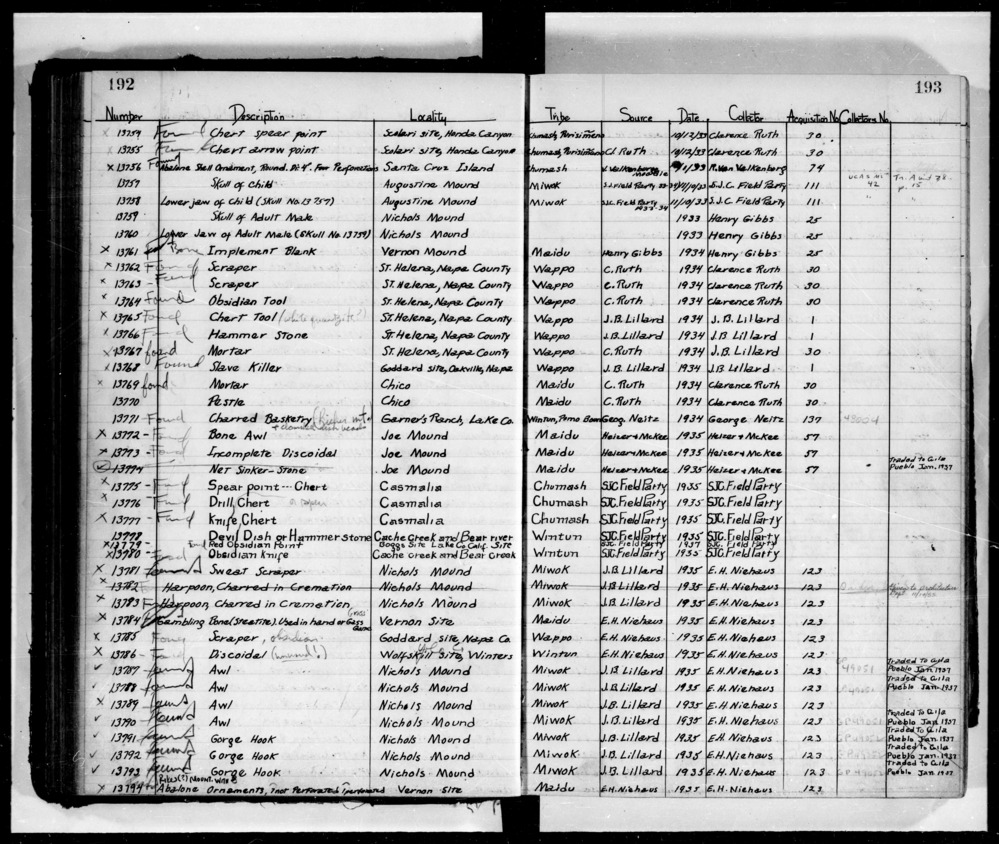 192
193
Number Description Locality Tribe Source Date Collector Acquisition No Collectors No.
x 13754 Found Chert spear point Scolari site, Honda Canyon Chumash, Purisimeno 10/12/33 Clarence Ruth 30
x 13755 Found Chert arrow point Scolari site, Honda Canyon Chumash, Purisimeno C. Ruth 10/12/33 Clarence Ruth 30
x 13756 Found Abalone Shell Ornament, Round, Four Perforations Santa Cruz Island Chumash 1933 R. Van Valkenberg 74
13757 Skull of Child Augustine Mound Miwok S.J. Field Party 33 11/10/33 S.J.C. Field Party 111 42 p. 15
13758 Lower jaw of Child (Skull No. 13757) Augustine Mound Miwok S.J.C. Field Party 1933-34 11/10/33 S.J.C. Field Party 111
13759 Skull of Adult Male Nichols Mound 1933 Henry Gibbs 25
13760 Lower Jaw of Adult Male (Skull No 13759) Nichols Mound 1933 Henry Gibbs 25
x 13761 Bone Implement Blank Vernon Mound Maidu Henry Gibbs 1934 Henry Gibbs 25
x 13762 Found Scraper St. Helena, Napa County Wappo C. Ruth 1934 Clarence Ruth 30
x 13763 - Found Scraper St. Helena, Napa County Wappo C. Ruth 1934 Clarence Ruth 30
x 13764 Found Obsidian Tool St. Helena, Napa County Wappo C. Ruth 1934 Clarence Ruth 30
x 13765 Found Chert Tool St. Helena, Napa County Wappo J.B. Lillard 1934 J.B. Lillard 1
x 13766 Found Hammer Stone St. Helena, Napa County Wappo J.B. Lillard 1934 J.B. Lillard 1
x 13767 found Mortar St. Helena, Napa County Wappo C. Ruth 1934 J.B. Lillard 30
x 13768 Found Slave Killer Goddard site, Oakville, Napa Wappo J.B. Lillard 1934 J.B. Lillard 1
x 13769 found Mortar Chico Maidu C. Ruth 1934 Clarence Ruth 30
13770 Pestle Chico Maidu C. Ruth 1934 Clarence Ruth 30
13771 - Found Charred Basketry Garner's Ranch, Lake Co. Wintun, Pomo Geog. Neitz 1934 George Neitz 137
x 13772 - Found Bone Awl Joe Mound Maidu Heizer & McKee 1935 Heizer & McKee 57
x 13773 - Found Incomplete Discoidal Joe Mound Maidu Heizer & McKee 1935 Heizer & McKee 57
13774 Net Sinker - Stone Joe Mound Maidu Heizer & McKee 1935 Heizer & McKee 57 Traded to Gila Pueblo Jan. 1937
x 13775 - Found Spear point - Chert Casmalia Chumash SJC. Field Party 1935 SJC. Field Party
x 13776 Found Drill, Chert Casmalia Chumash SJC. Field Party 1935 SJC. Field Party
x 13777 - Found Knife, Chert Casmalia Chumash SJC. Field Party 1935 SJC. Field Party
13778 Devil Dish or Hammer stone Cache Creek and Bear river Wintun SJC. Field Party 1935 SJC. Field Party
x 13779 - Red Obsidian Point Boggs Site Lake Co. Calif. Site SJC. Field Party 1937 SJC. Field Party
x 13780 - Found Obsidian Knife Cache Creek and Bear Creek Wintun SJC. Field Party 1935 SJC. Field Party
x 13781 found Sweat Scraper Nichols Mound Miwok J.B. Lillard 1935 E.H. Niehaus 123
x 13782 Harpoon, Charred in Cremation Nichols Mound Miwok J.B. Lillard 1935 E.H. Niehaus 123
x 13783 F Harpoon, charred in Cremation Nichols Mound Miwok J.B. Lillard 1935 E.H. Niehaus 123
x 13784 Gambling Bone (Steatite). Used in hand or Grass Game Vernon Site Maidu E.H. Niehaus 1935 E.H. Niehaus 123
x 13785 Found Scraper, obsidian Goddard site, Napa Co. Wappo E.H. Niehaus 1935 E.H. Niehaus 123
x 13786 - Found Discoidal Wolfskill Site, Winters Wintun E.H. Niehaus 1935 E.H. Niehaus 123
✓ 13787 found Awl Nichols Mound Miwok J.B. Lillard 1935 E.H. Niehaus 123 Traded to Gila Pueblo Jan 1937
✓ 13788 found Awl Nichols Mound Miwok J.B. Lillard 1935 E.H. Niehaus 123 Traded to Gila Pueblo Jan 1937
x 13789 - found Awl Nichols Mound Miwok J.B. Lillard 1935 E.H. Niehaus 123
✓ 13790 found Awl Nichols Mound Miwok J.B. Lillard 1935 E.H. Niehaus 123 Traded to Gila Pueblo Jan 1937
✓ 13791 found Gorge Hook Nichols Mound Miwok J.B. Lillard 1935 E.H. Niehaus 123 Traded to Gila Pueblo Jan 1937
✓ 13792 found Gorge Hook Nichols Mound Miwok J.B. Lillard 1935 E.H. Niehaus 123 Traded to Gila Pueblo Jan 1937
✓ 13793 found Gorge Hook Nichols Mound Miwok J.B. Lillard 1935 E.H. Niehaus 123 Traded to Gila Pueblo Jan 1937
x 13794 Abalone Ornaments, 1 not Perforated 1 perforated Vernon Site Maidu E.H. Niehaus 1935 E.H. Niehaus 123